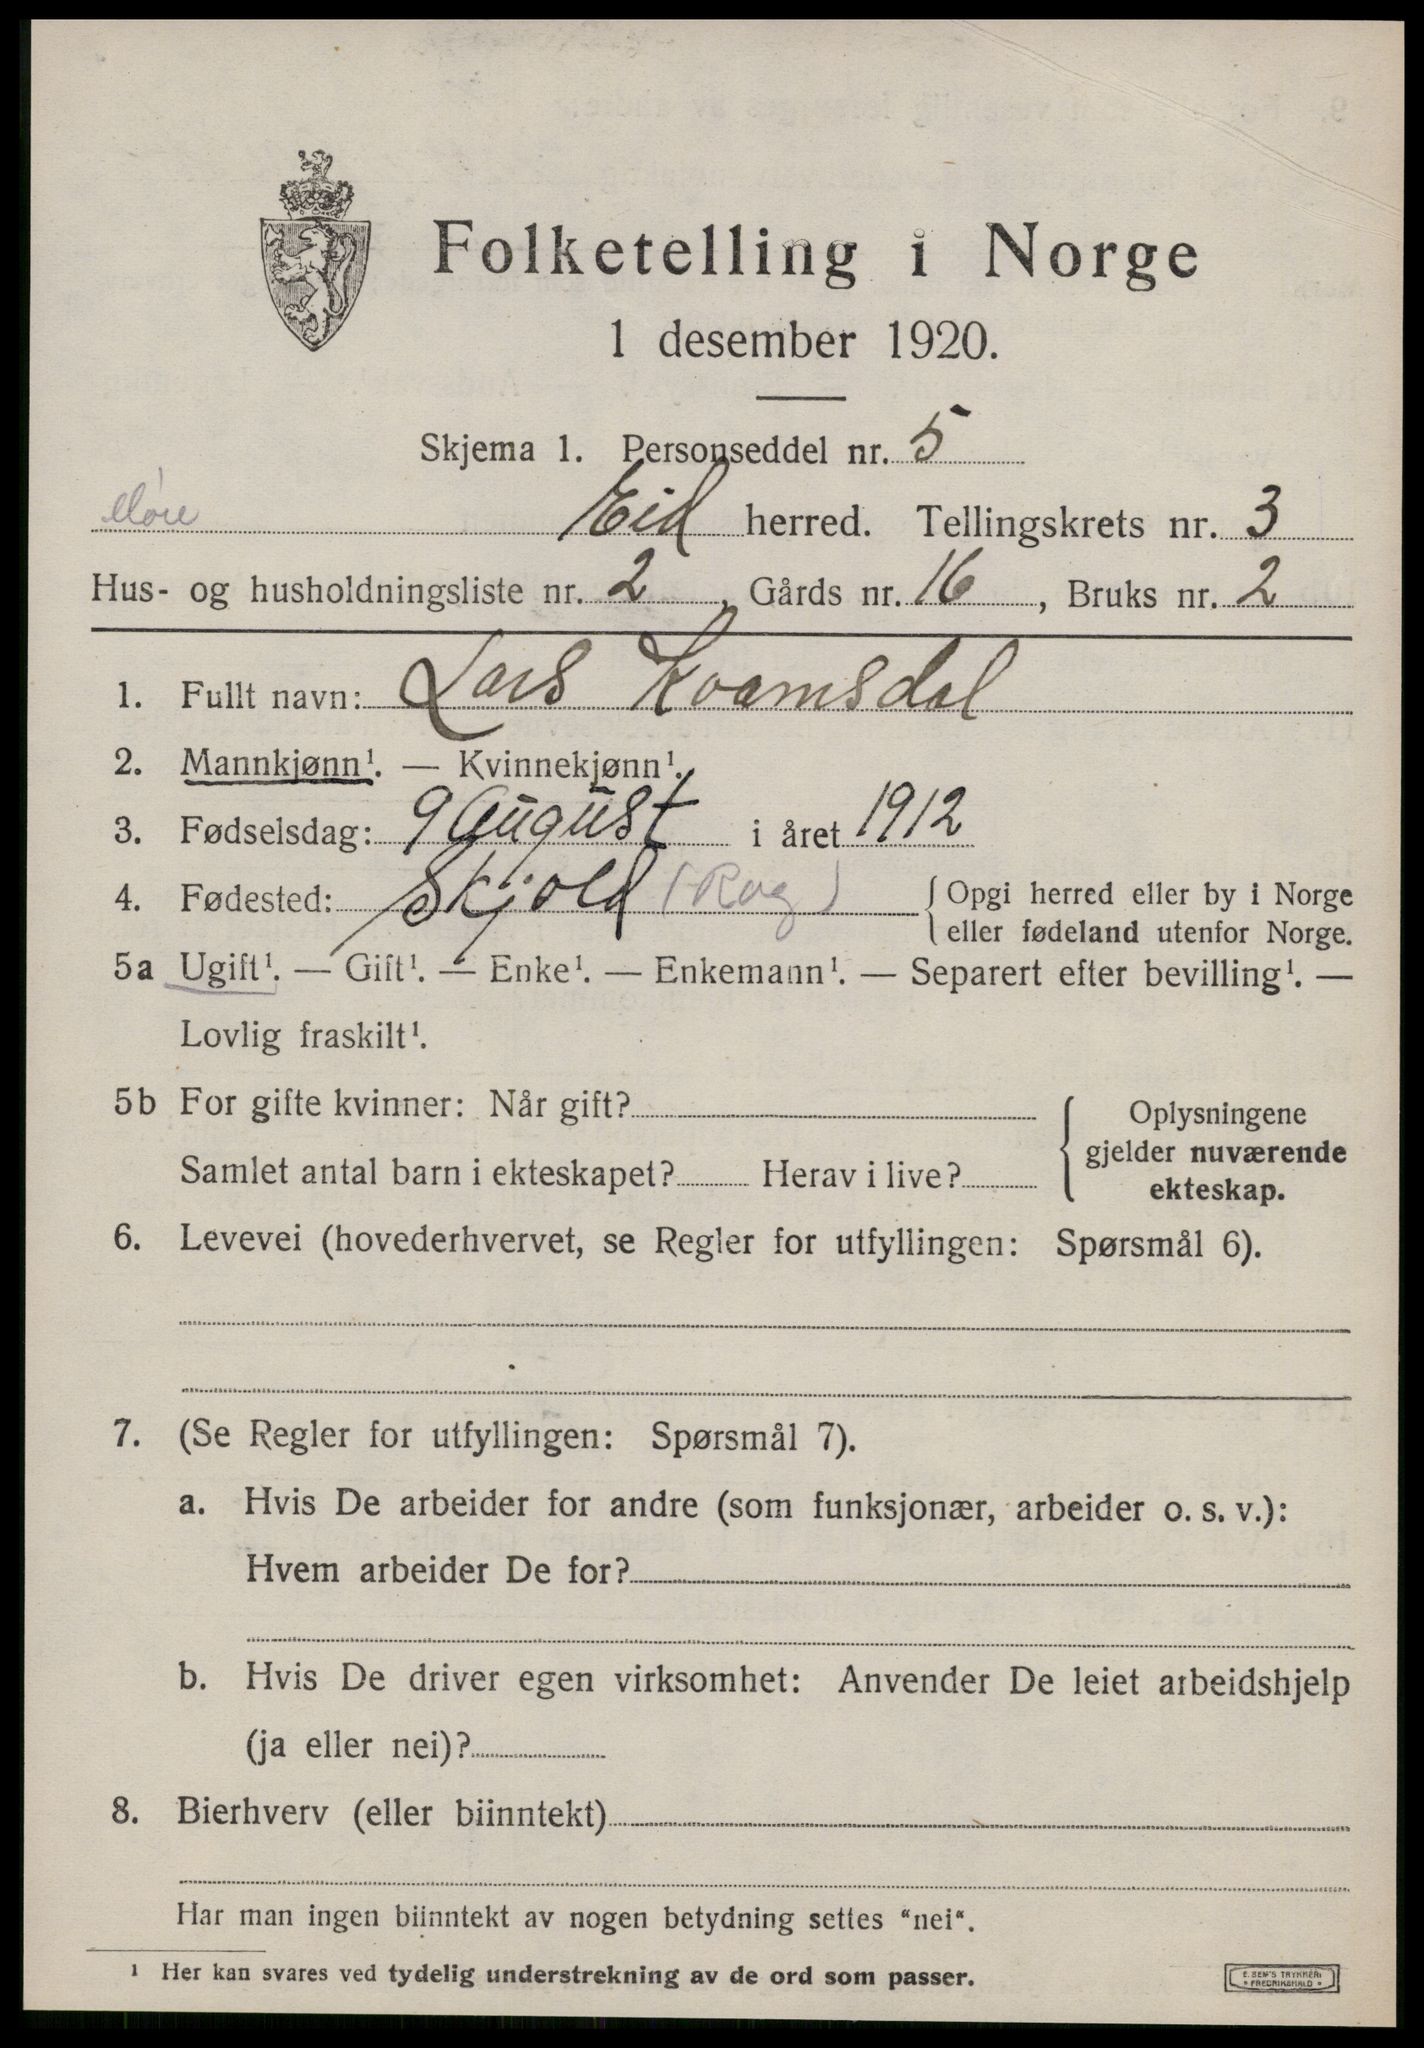 Folketelling i Norge
1 desember 1920.
Skjema 1. Personseddel nr. 5
Møre Eid herred. Tellingskrets nr. 3
Hus- og husholdningsliste nr. 2, Gårds nr. 16, Bruks nr. 2
1. Fullt navn: Lars Kvamsdal
2. Mannkjønn¹. — Kvinnekjønn¹.
3. Fødselsdag: 9 August i året 1912
4. Fødested: Skjold (Rog) { Opgi herred eller by i Norge
eller fødeland utenfor Norge.
5a Ugift¹. — Gift¹. — Enke¹. — Enkemann¹. — Separert efter bevilling¹. —
Lovlig fraskilt¹.
5b For gifte kvinner: Når gift?
Samlet antal barn i ekteskapet? Herav i live?
{ Oplysningene
gjelder nuværende
ekteskap.
6. Levevei (hovederhvervet, se Regler for utfyllingen: Spørsmål 6).
7. (Se Regler for utfyllingen: Spørsmål 7).
a. Hvis De arbeider for andre (som funksjonær, arbeider o. s. v.):
Hvem arbeider De for?
b. Hvis De driver egen virksomhet: Anvender De leiet arbeidshjelp
(ja eller nei)?
8. Bierhverv (eller biinntekt)
Har man ingen biinntekt av nogen betydning settes "nei".
¹ Her kan svares ved tydelig understrekning av de ord som passer.
E. SEM'S TRYKKERI
• FREDRIKSHALD •